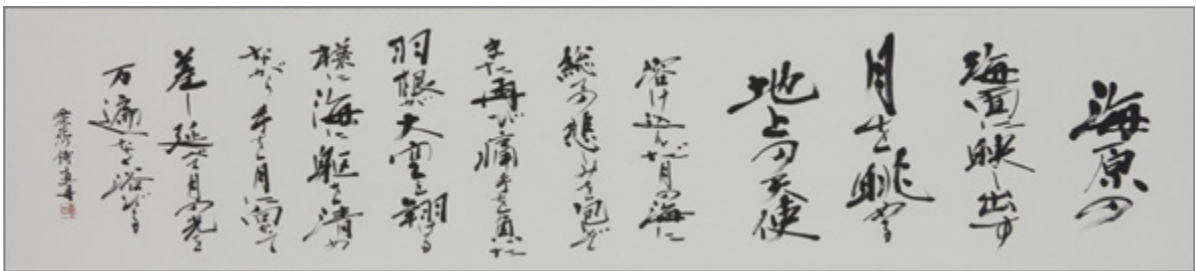 海原の
海面に映し出す
月を眺める
地上の天使
溶け込んだ月の海に
総る悲しみを包んで
また再び痛手を負った
羽根が大空を翔る
様に海に躯を清め
ながら手を月に向って
差し延べて月の光を
万遍なく浴びる